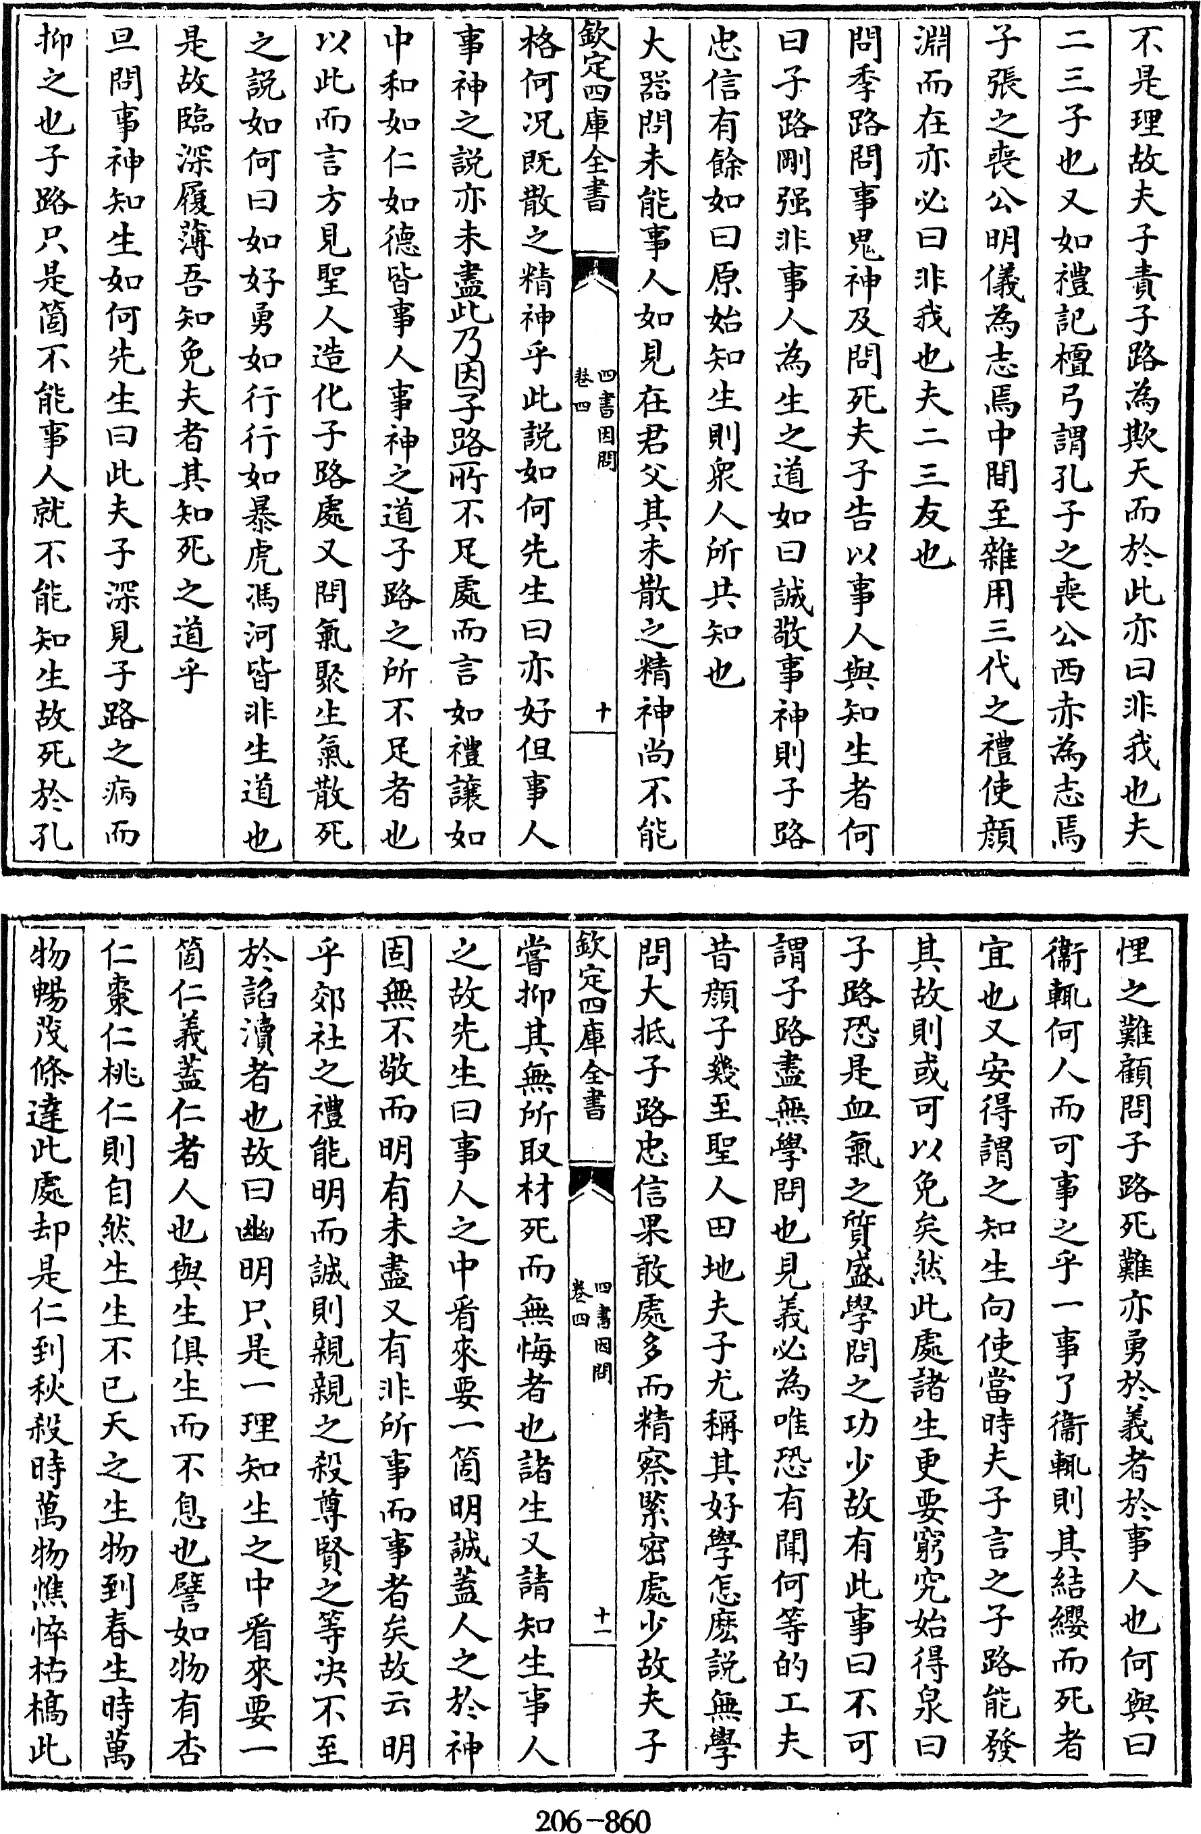 不是理故夫子責子路為欺天而於此亦曰非我也夫
二三子也又如禮記檀弓謂孔子之喪公西赤為志焉
子張之喪公明儀為志焉中間至雜用三代之禮使顔
淵而在亦必曰非我也夫二三友也
問季路問事鬼神及問死夫子告以事人與知生者何
曰子路剛强非事人為生之道如曰誠敬事神則子路
忠信有餘如曰原始知生則衆人所共知也
大器問未能事人如見在君父其未散之精神尚不能
欽定四庫全書
四書因問
卷四
十
格何况既散之精神乎此説如何先生曰亦好但事人
事神之説亦未盡此乃因子路所不足處而言如禮讓如
中和如仁如德皆事人事神之道子路之所不足者也
以此而言方見聖人造化子路處又問氣聚生氣散死
之説如何曰如好勇如行行如暴虎馮河皆非生道也
是故臨深履薄吾知免夫者其知死之道乎
旦問事神知生如何先生曰此夫子深見子路之病而
抑之也子路只是箇不能事人就不能知生故死於孔
悝之難顧問子路死難亦勇於義者於事人也何與曰
衞輒何人而可事之乎一事了衞輒則其結纓而死者
宜也又安得謂之知生向使當時夫子言之子路能發
其故則或可以免矣然此處諸生更要窮究始得泉曰
子路恐是血氣之質盛學問之功少故有此事曰不可
謂子路盡無學問也見義必為唯恐有聞何等的工夫
昔顔子幾至聖人田地夫子尤稱其好學怎麽説無學
問大抵子路忠信果敢處多而精察緊密處少故夫子
欽定四庫全書
四書因問
卷四
十一
嘗抑其無所取材死而無悔者也諸生又請知生事人
之故先生曰事人之中看來要一箇明誠蓋人之於神
固無不敬而明有未盡又有非所事而事者矣故云明
乎郊社之禮能明而誠則親親之殺尊賢之等决不至
於諂瀆者也故曰幽明只是一理知生之中看來要一
箇仁義蓋仁者人也與生俱生而不息也譬如物有杏
仁棗仁桃仁則自然生生不已天之生物到春生時萬
物暢茂條達此處却是仁到秋殺時萬物憔悴枯槁此
206-860